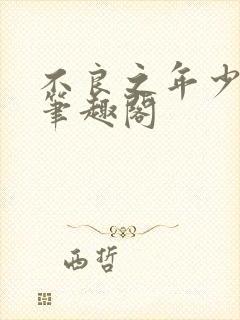 不良之年少
筆趣閣
西哲